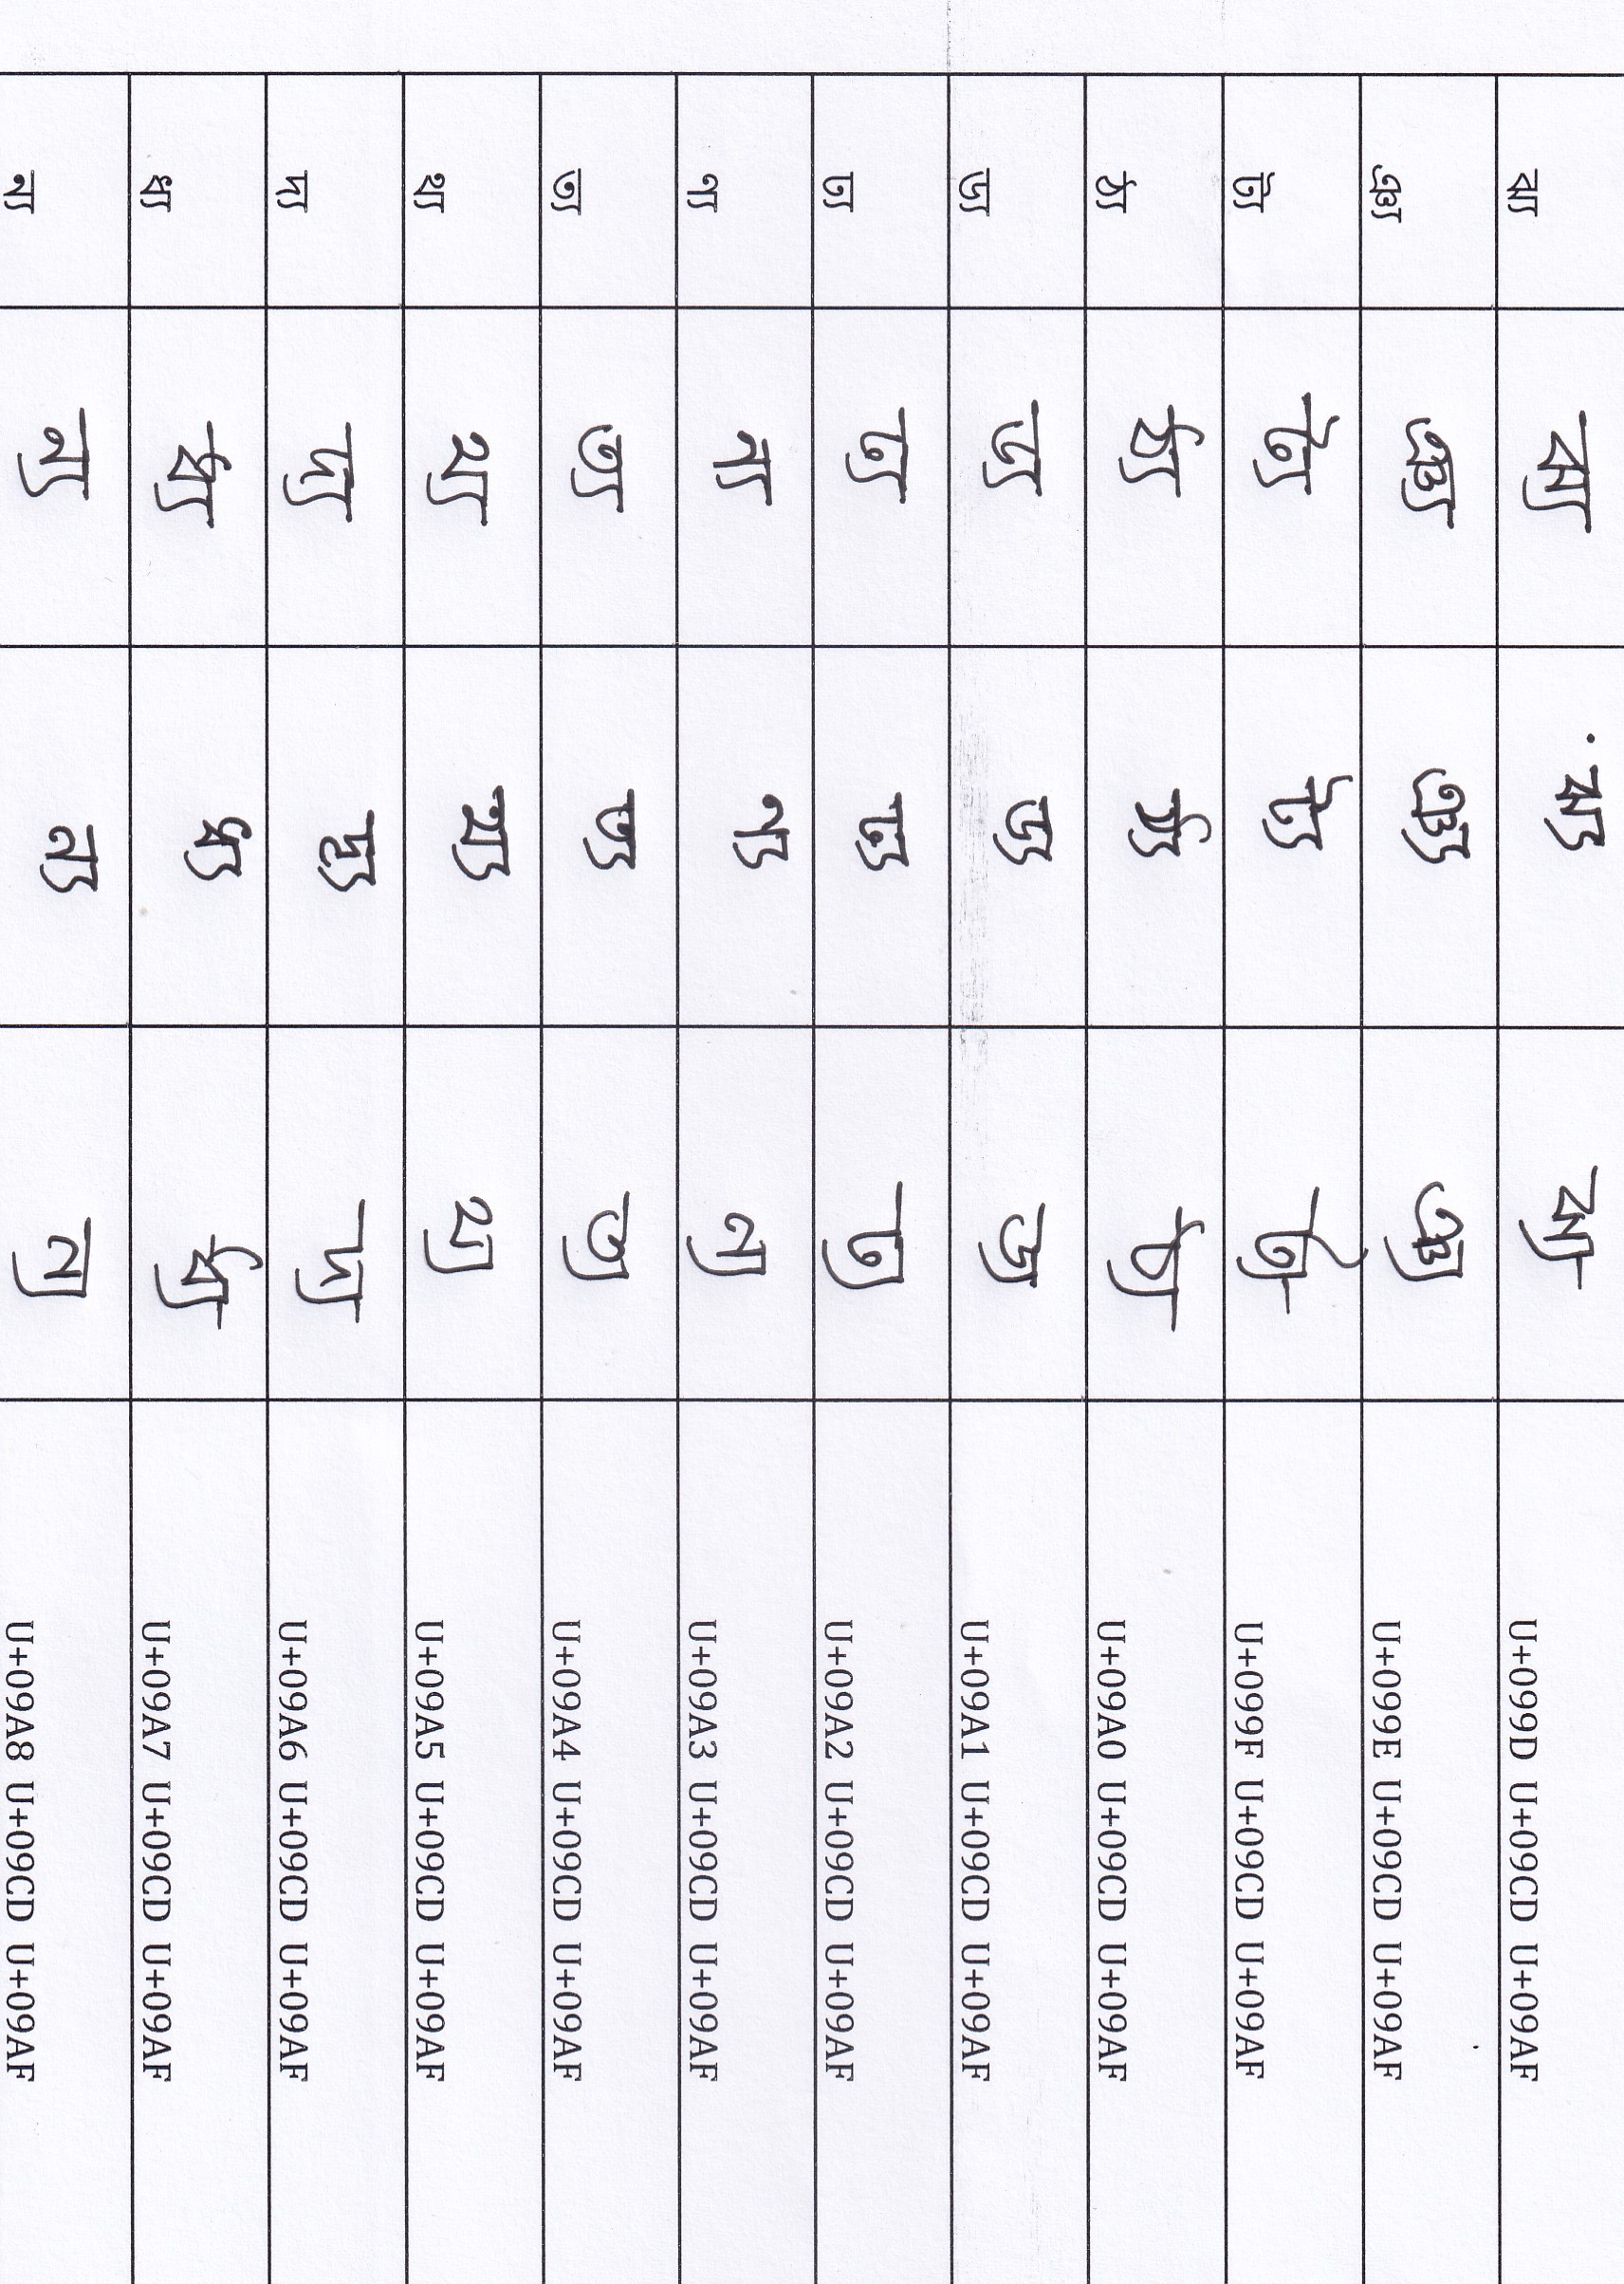 ঝ্য ঝ্য ঝ্য ঝ্য U+099D U+09CD U+09AF
ঞ্য ঞ্য ঞ্য ঞ্য U+099E U+09CD U+09AF
ট্য ট্য ট্য ট্য U+099F U+09CD U+09AF
ঠ্য ঠ্য ঠ্য ঠ্য U+09A0 U+09CD U+09AF
ড্য ড্য ড্য ড্য U+09A1 U+09CD U+09AF
ঢ্য ঢ্য ঢ্য ঢ্য U+09A2 U+09CD U+09AF
ণ্য ণ্য ণ্য ণ্য U+09A3 U+09CD U+09AF
ত্য ত্য ত্য ত্য U+09A4 U+09CD U+09AF
থ্য থ্য থ্য থ্য U+09A5 U+09CD U+09AF
দ্য দ্য দ্য দ্য U+09A6 U+09CD U+09AF
ধ্য ধ্য ধ্য ধ্য U+09A7 U+09CD U+09AF
ন্য ন্য ন্য ন্য U+09A8 U+09CD U+09AF